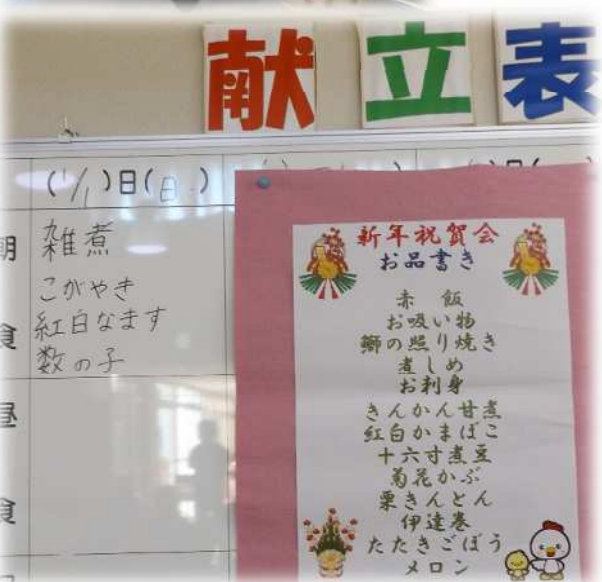 献立表
(1/1)日(日)
朝
雑煮
こがやき
食
紅白なます
数の子
昼
食
新年祝賀会
お品書き
赤 飯
お吸い物
鰤の照り焼き
煮しめ
お刺身
きんかん甘煮
紅白かまぼこ
十六寸煮豆
菊花かぶ
栗きんとん
伊達巻
たたきごぼう
メロン